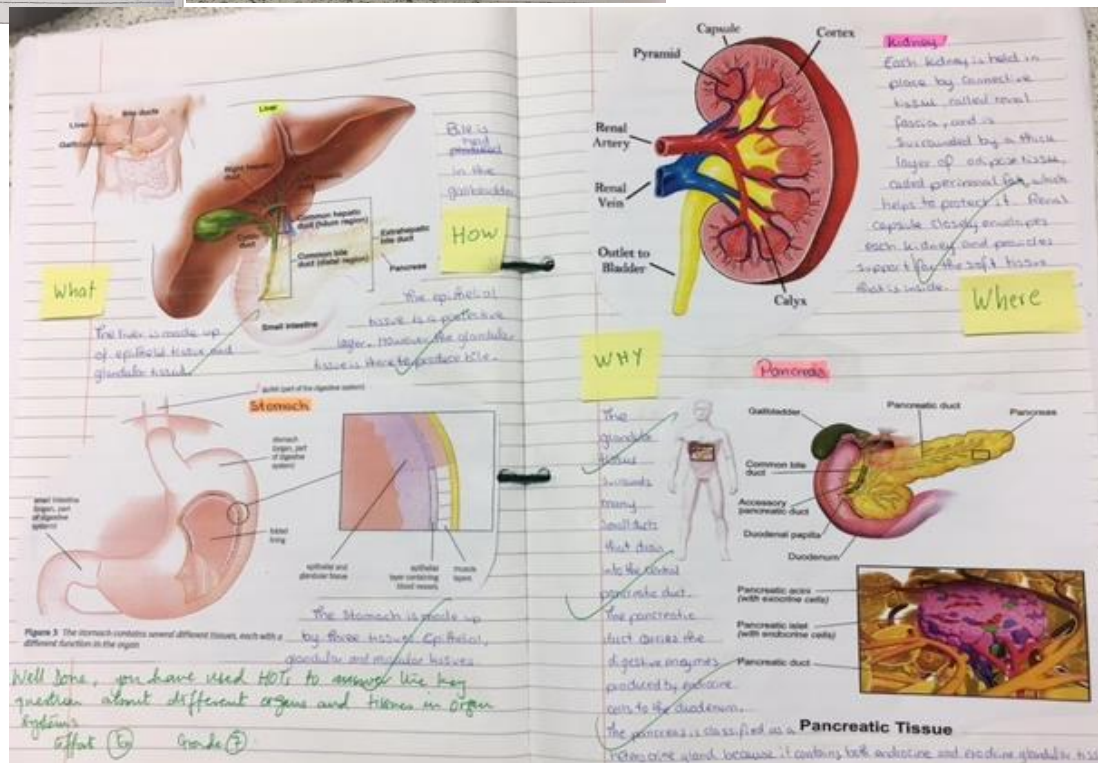 Liver
Bile ducts
Liver
Gallbladder
Right hepatic
duct
Cystic
duct
Common hepatic
duct (hilum region)
Common bile
duct (distal region)
Extrahepatic
bile duct
Pancreas
Small intestine
Bile is
produced
in the
gallbladder
HOW
What
The liver is made up
of epithelial tissue and
glandular tissue
The epithelial
tissue is a protective
layer. However the glandular
tissue is there to produce bile.
gullet (part of the digestive system)
Stomach
stomach
(organ, part
of digestive
system)
small intestine
(organ, part
of digestive
system)
folded
lining
epithelial and
glandular tissue
epithelial
layer containing
blood vessels
muscle
layers
Figure 3 The stomach contains several different tissues, each with a
different function in the organ
The Stomach is made up
by three tissue. Epithelial,
glandular and muscular tissues
Well Done, you have used HOTs to answer the key
question about different organs and tissues in organ
systems
Effort Grade 7
Capsule
Cortex
Pyramid
Renal
Artery
Renal
Vein
Outlet to
Bladder
Calyx
Kidney
Each kidney is held in
place by connective
tissue, called renal
fascia, and is
surrounded by a thick
layer of adipose tissue,
called perirenal fat, which
helps to protect it. Renal
capsule closely envelopes
each kidney and provides
support for the soft tissue
that is inside.
Where
WHY
Pancreas
The
glandular
tissue
surrounds
many
small ducts
that drain
into the central
pancreatic duct.
The pancreatic
duct carries the
digestive enzymes
produced by endocrine
cells to the duodenum.
The pancreas is classified as a
heterocrine gland because it contains both endocrine and exocrine glandular tissue
Gallbladder
Pancreatic duct
Pancreas
Common bile
duct
Accessory
pancreatic duct
Duodenal papilla
Duodenum
Pancreatic acini
(with exocrine cells)
Pancreatic islet
(with endocrine cells)
Pancreatic duct
Pancreatic Tissue